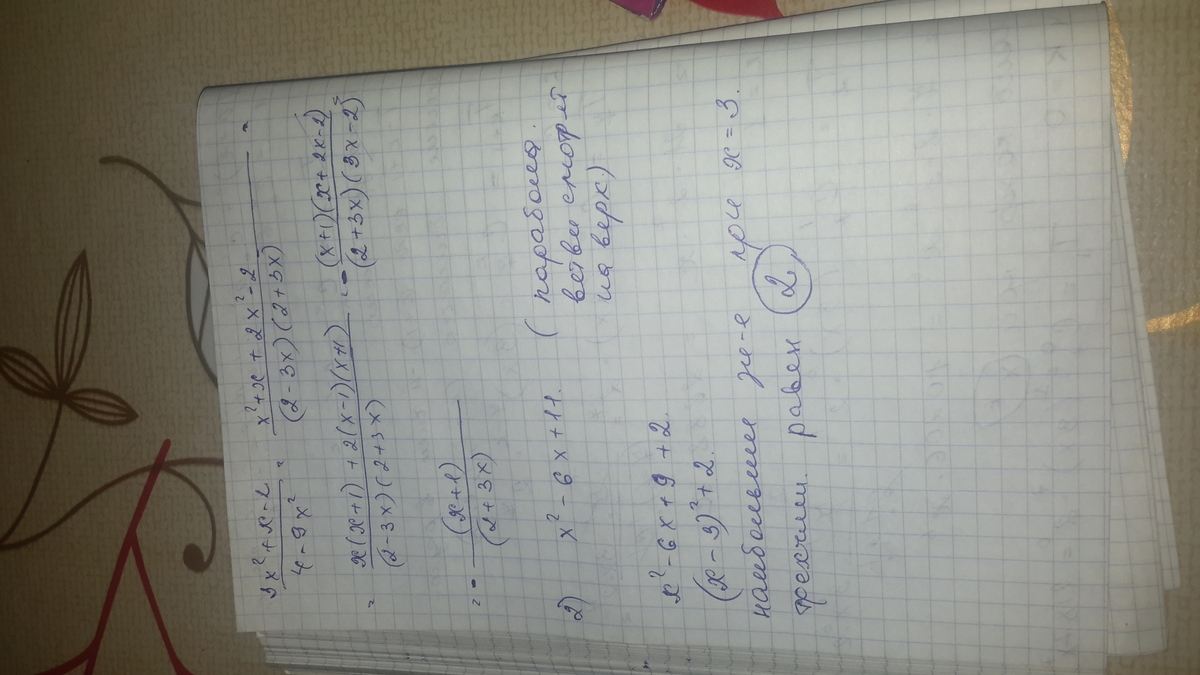 3x² + x - 2 / 4 - 9x² = x² + x + 2x² - 2 / (2 - 3x)(2 + 3x) =
= x(x+1) + 2(x-1)(x+1) / (2-3x)(2+3x) = - (x+1)(x+2x-2) / (2+3x)(3x-2) =
= - (x+1) / (2+3x)
2) x² - 6x + 11. (парабола.
ветви смотрят
на верх.)
x² - 6x + 9 + 2.
(x - 3)² + 2.
наибольшим зн-е при x = 3.
трехчлен. равен 2,